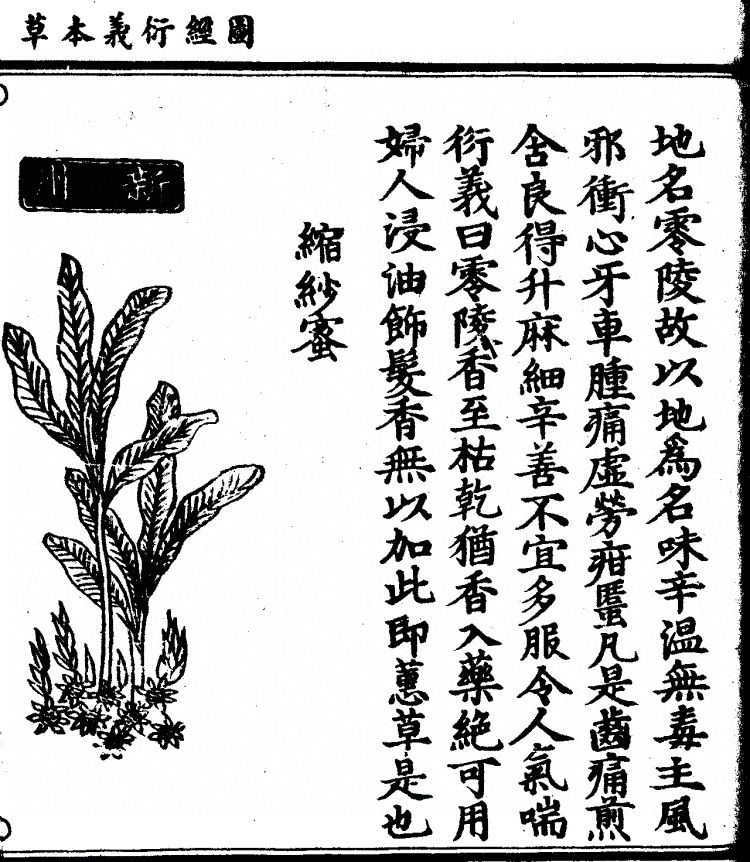 圖經衍義本草
地名零陵故以地爲名味辛温無毒主風
邪衝心牙車腫痛虛勞疳䘌凡是齒痛煎
舍良得升麻細辛善不宜多服令人氣喘
衍義曰零陵香至枯乾猶香入藥絶可用
婦人浸油飾髮香無以加此即蕙草是也
縮紗蜜
新州